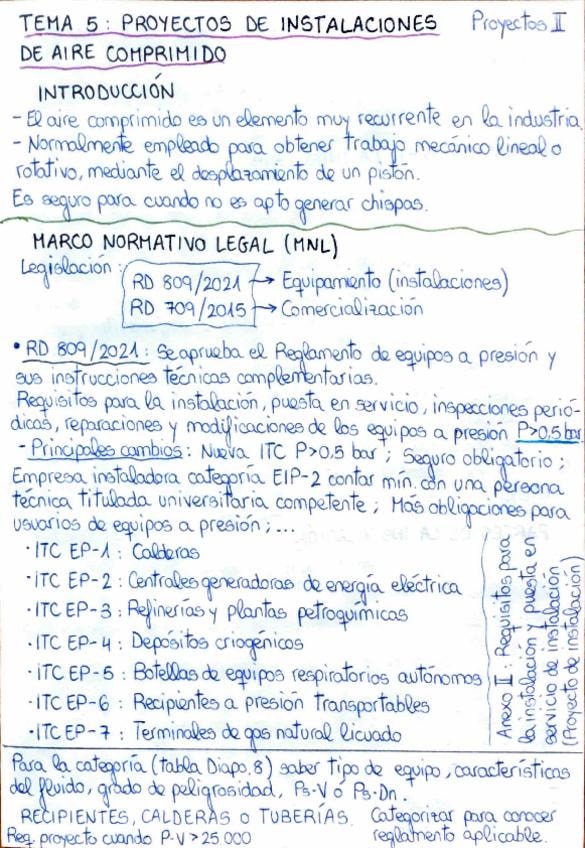 TEMA 5 : PROYECTOS DE INSTALACIONES
DE AIRE COMPRIMIDO
Proyectos II
INTRODUCCIÓN
- El aire comprimido es un elemento muy recurrente en la industria
- Normalmente empleado para obtener trabajo mecánico lineal o
rotativo, mediante el desplazamiento de un pistón.
Es seguro para cuando no es apto generar chispas.
MARCO NORMATIVO LEGAL (MNL)
Legislación :
RD 809/2021 → Equipamiento (instalaciones)
RD 709/2015 → Comercialización
• RD 809/2021 : Se aprueba el Reglamento de equipos a presión y
sus instrucciones técnicas complementarias.
Requisitos para la instalación, puesta en servicio, inspecciones perió-
dicas, reparaciones y modificaciones de los equipos a presión P>0,5 bar
- Principales cambios : Nueva ITC P>0,5 bar ; Seguro obligatorio ;
Empresa instaladora categoría EIP-2 contar mín. con una persona
técnica titulada universitaria competente ; Más obligaciones para
usuarios de equipos a presión ; ...
· ITC EP-1 : Calderas
· ITC EP-2 : Centrales generadoras de energía eléctrica
· ITC EP-3 : Refinerías y plantas petroquímicas
· ITC EP-4 : Depósitos criogénicos
· ITC EP-5 : Botellas de equipos respiratorios autónomos
· ITC EP-6 : Recipientes a presión transportables
· ITC EP-7 : Terminales de gas natural licuado
Anexo II : Requisitos para
la instalación y puesta en
servicio de instalación
(Proyecto de instalación)
Para la categoría (tabla Diapo.8) saber tipo de equipo, características
del fluido, grado de peligrosidad, Ps·V ó Ps·Dn.
RECIPIENTES, CALDERAS o TUBERÍAS. Categorizar para conocer
Req. proyecto cuando P·V > 25.000 reglamento aplicable.